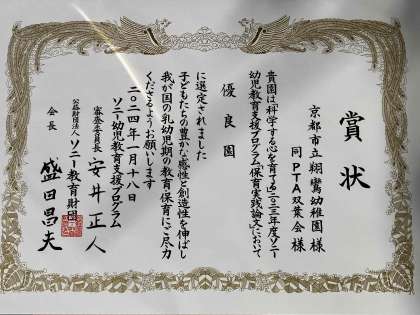 賞状
京都市立翔鸞幼稚園 様
同PTA双葉会 様
貴園は科学する心を育てる二〇二三年度ソニー
幼児教育支援プログラム「保育実践論文」において
優良園
に選定されました
子どもたちの豊かな感性と創造性を伸ばし
我が国の乳幼児期の教育・保育にご尽力
くださるようお願いします
二〇二四年一月十八日
ソニー幼児教育支援プログラム
審査委員長 安井正人
公益財団法人ソニー教育財団
会長 盛田昌夫